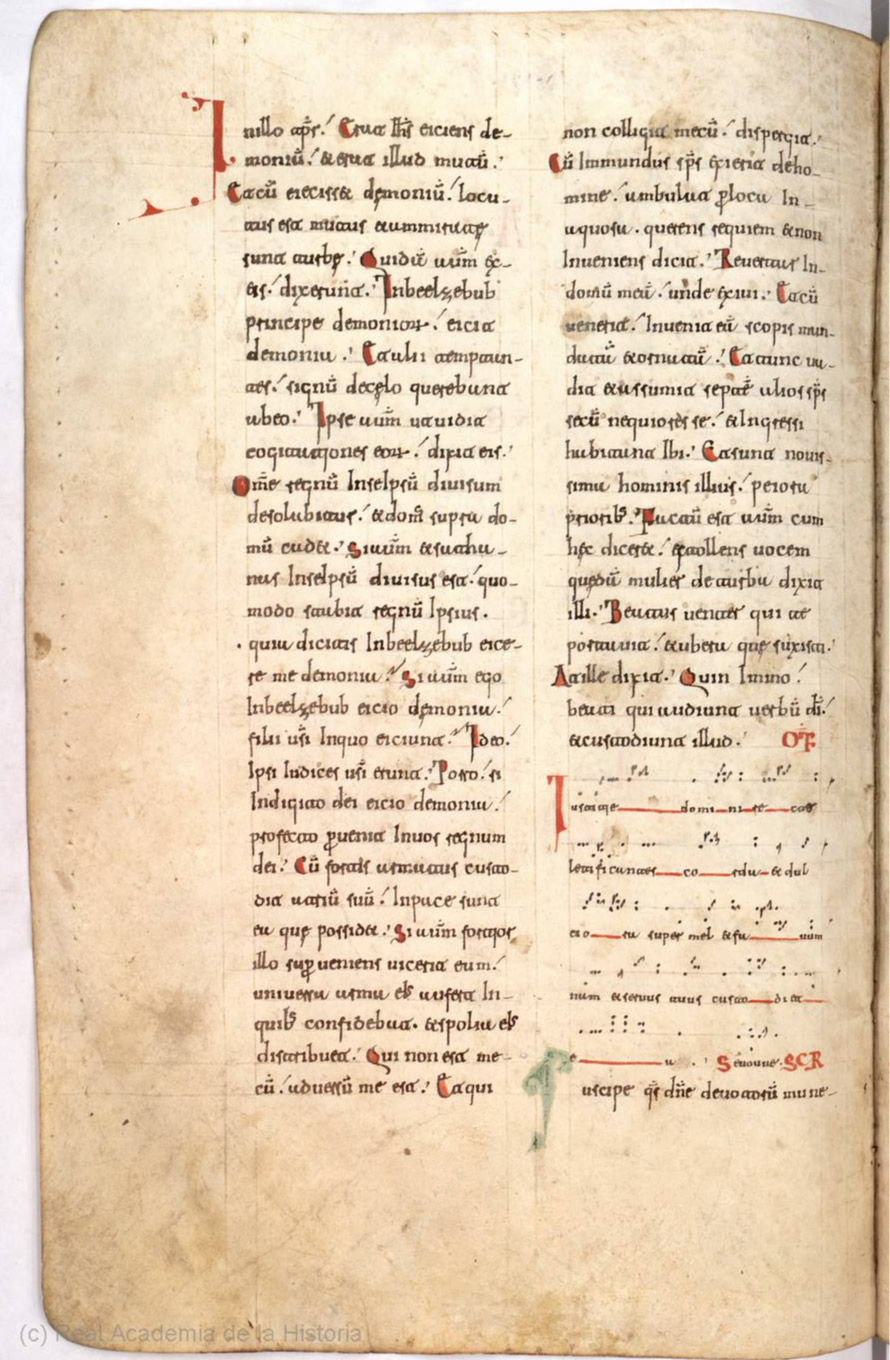 In illo tp̄r. Erat ih̄s eiciens de-
moniū. & erat illud mutū.
Et cū eiecisset demoniū. locu-
tus est mutus & ammirate
sunt turbe. Quidā aūm ex
eis. dixerunt. In beelzebub
principe demoniorum. eicit
demonia. Et alii temptan-
tes. signū de celo querebant
ab eo. Ipse aūm ut vidit
cogitationes eorum. dixit eis.
Om̄e regnū In se ipsū divisum
desolabitur. & domꝰ supra do-
mū cadet. Si aūm & satha-
nas In se ipsū divisus est. quo-
modo stabit regnū Ipsius.
quia dicitis In beelzebub eice-
re me demonia. Si aūm ego
In beelzebub eicio demonia.
filii ūsi In quo eiciunt. Ideo.
Ipsi Iudices ūsi erunt. Porro. si
In digito dei eicio demonia.
profecto pvenit In vos regnum
dei. Cū fortis armatus custo-
dit atriū suū. In pace sunt
ea que possidet. Si aūm fortior
illo supveniens vicerit eum.
universa arma eiꝰ auferet In
quibꝰ confidebat. & spolia eiꝰ
distribuet. Qui non est me-
cū. adversū me est. Et qui
non colligit mecū. dispergit.
Cū Immundus sp̄s exierit de ho-
mine. ambulat p loca In
aquosa. querens requiem & non
Inveniens dicit. Revertar In
domū meā. unde exivi. Et cū
venerit. Invenit eā scopis mun-
datā & ornatā. Et tunc va-
dit & assumit septē alios sp̄s
secū nequiores se. & Ingressi
habitant Ibi. Et sunt novis-
sima hominis illius. peiora
prioribꝰ. Factū est aūm cum
hec diceret. extollens vocem
quedā mulier de turba dixit
illi. Beatus venter qui te
portavit. & ubera que suxisti.
At ille dixit. Quin Immo.
beati qui audiunt verbū dī.
& custodiunt illud. OF.
Iustitie domini recte
letificantes corda & dul
cio ra super mel & fa vum
nam & servus tuus custo di et
e a. Sevovae. SCR
Suscipe q̄s dn̄e devotorū mune-